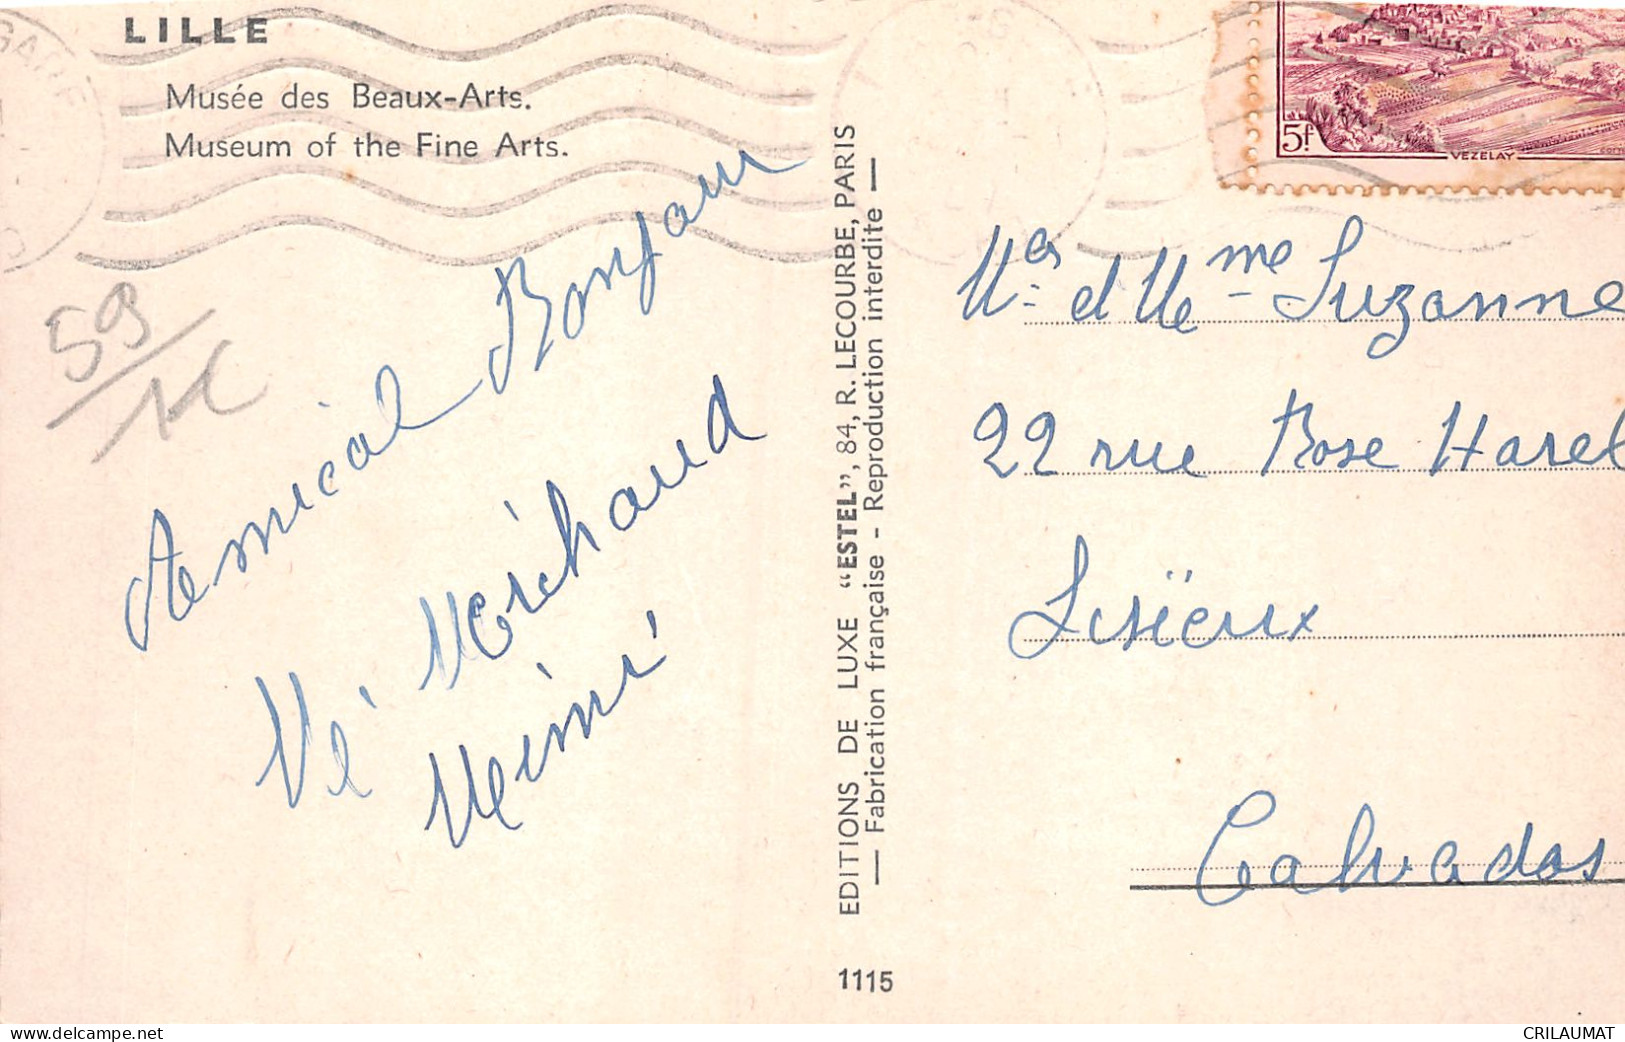 LILLE
Musée des Beaux-Arts.
Museum of the Fine Arts.
GARE
5f
VEZELAY
59
Amical Bonjour
Marchand
Mimi
EDITIONS DE LUXE "ESTEL", 84, R. LECOURBE, PARIS
— Fabrication française - Reproduction interdite —
1115
et Me Suzanne
22 rue Rose Harel
Lisieux
Calvados
www.delcampe.net
CRILAUMAT